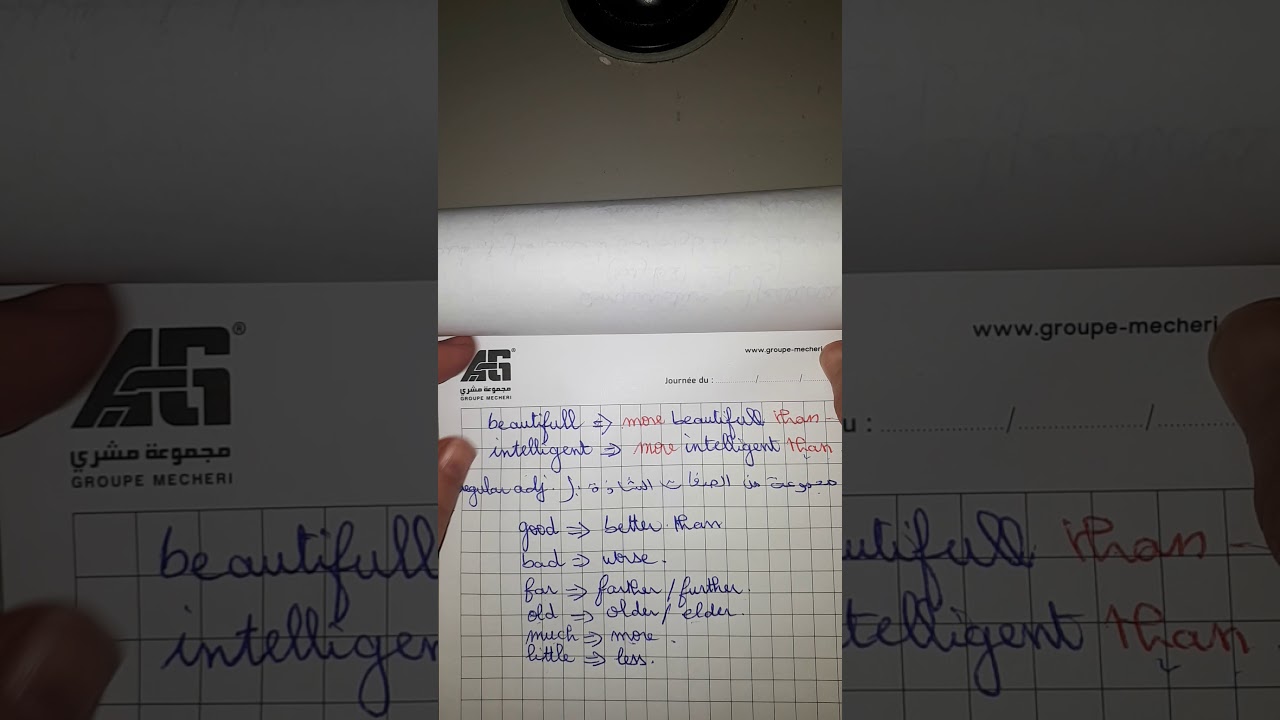 AG®
مجموعة مشري
GROUPE MECHERI
www.groupe-mecheri
Journée du : ............/............/........
beautifull => more beautifull than -
intelligent => more intelligent than
egular adj ). مجموعة من الصفات الشاذة :
good => better than
bad => worse.
far => farther / further.
old => older / elder.
much => more.
little => less.